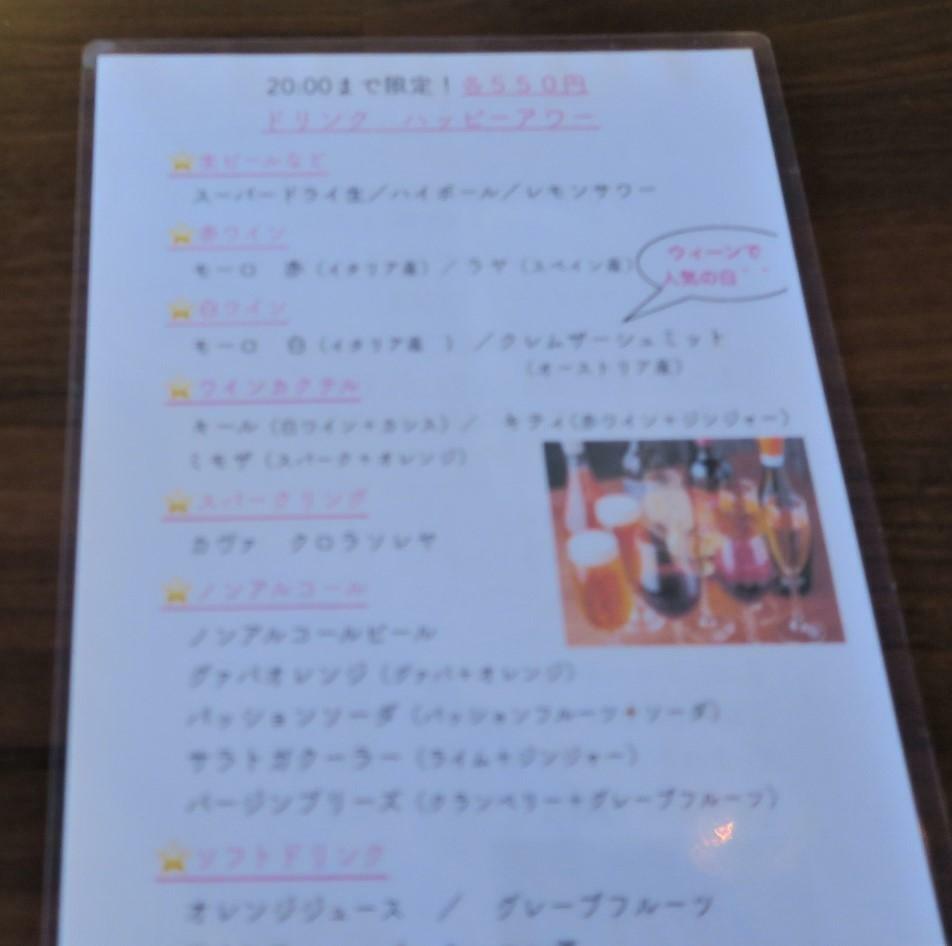 20:00まで限定！各５５０円
ドリンク　ハッピーアワー
生ビールなど
スーパードライ生／ハイボール／レモンサワー
赤ワイン
モーロ　赤（イタリア産）／ラヤ（スペイン産）
ウィーンで
人気の白
白ワイン
モーロ　白（イタリア産　）／クレムザーシュミット
（オーストリア産）
ワインカクテル
キール（白ワイン＋カシス）／　キティ（赤ワイン＋ジンジャー）
ミモザ（スパーク＋オレンジ）
スパークリング
カヴァ　クロラソレヤ
ノンアルコール
ノンアルコールビール
グァバオレンジ（グァバ＋オレンジ）
パッションソーダ（パッションフルーツ＋ソーダ）
サラトガクーラー（ライム＋ジンジャー）
バージンブリーズ（クランベリー＋グレープフルーツ）
ソフトドリンク
オレンジジュース　／　グレープフルーツ